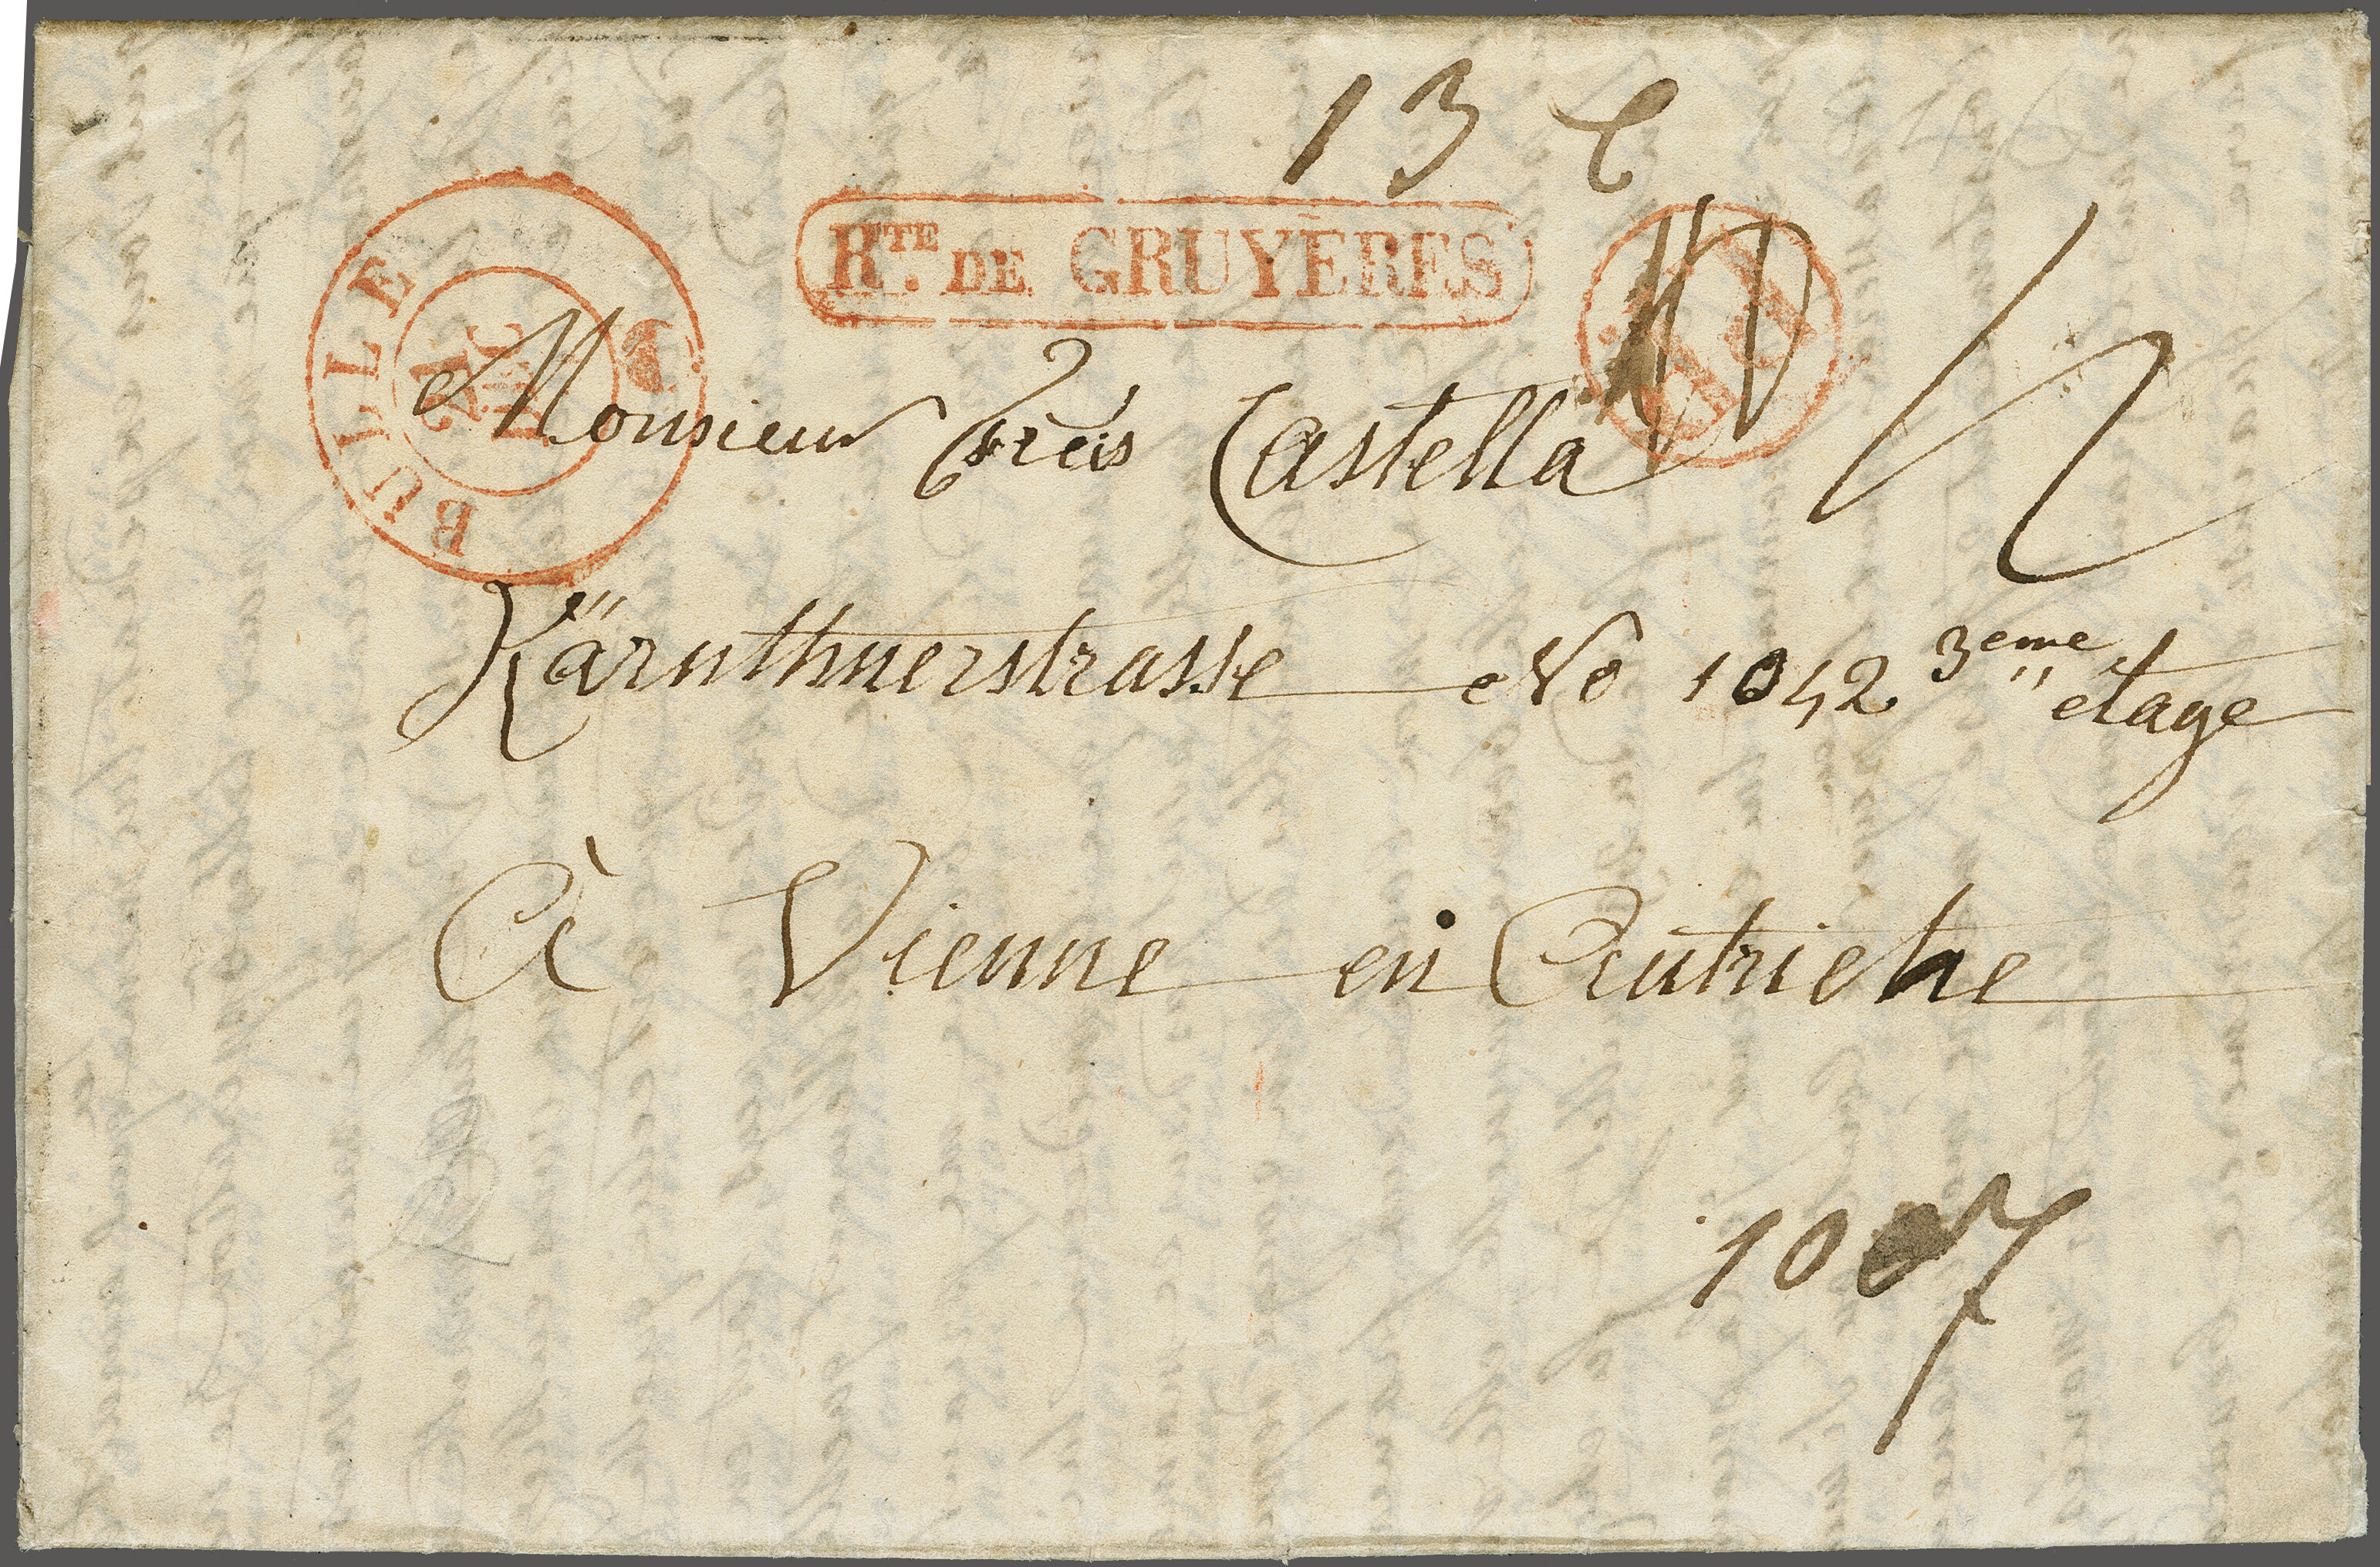 13
BULLE
24 DEC
RTE. DE GRUYÈRES
PP
Monsieur Castella
Kärnthnerstrasse No 1042. 3eme étage
À Vienne en Autriche
10 7